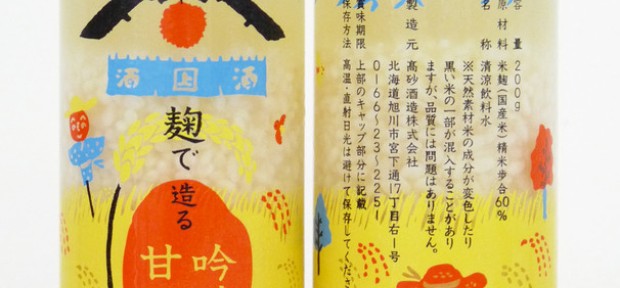 麹で造る
吟
甘
容量 200g
原材料 米麹(国産米)精米歩合60%
名称 清涼飲料水
※天然素材米の成分が変色したり
黒い米の一部が混入することがあり
ますが品質には問題はありません。
製造元 高砂酒造株式会社
北海道旭川市宮下通17丁目右1号
0166-23-2251
賞味期限 上部のキャップ部分に記載
保存方法 高温・直射日光は避けて保存してくださ